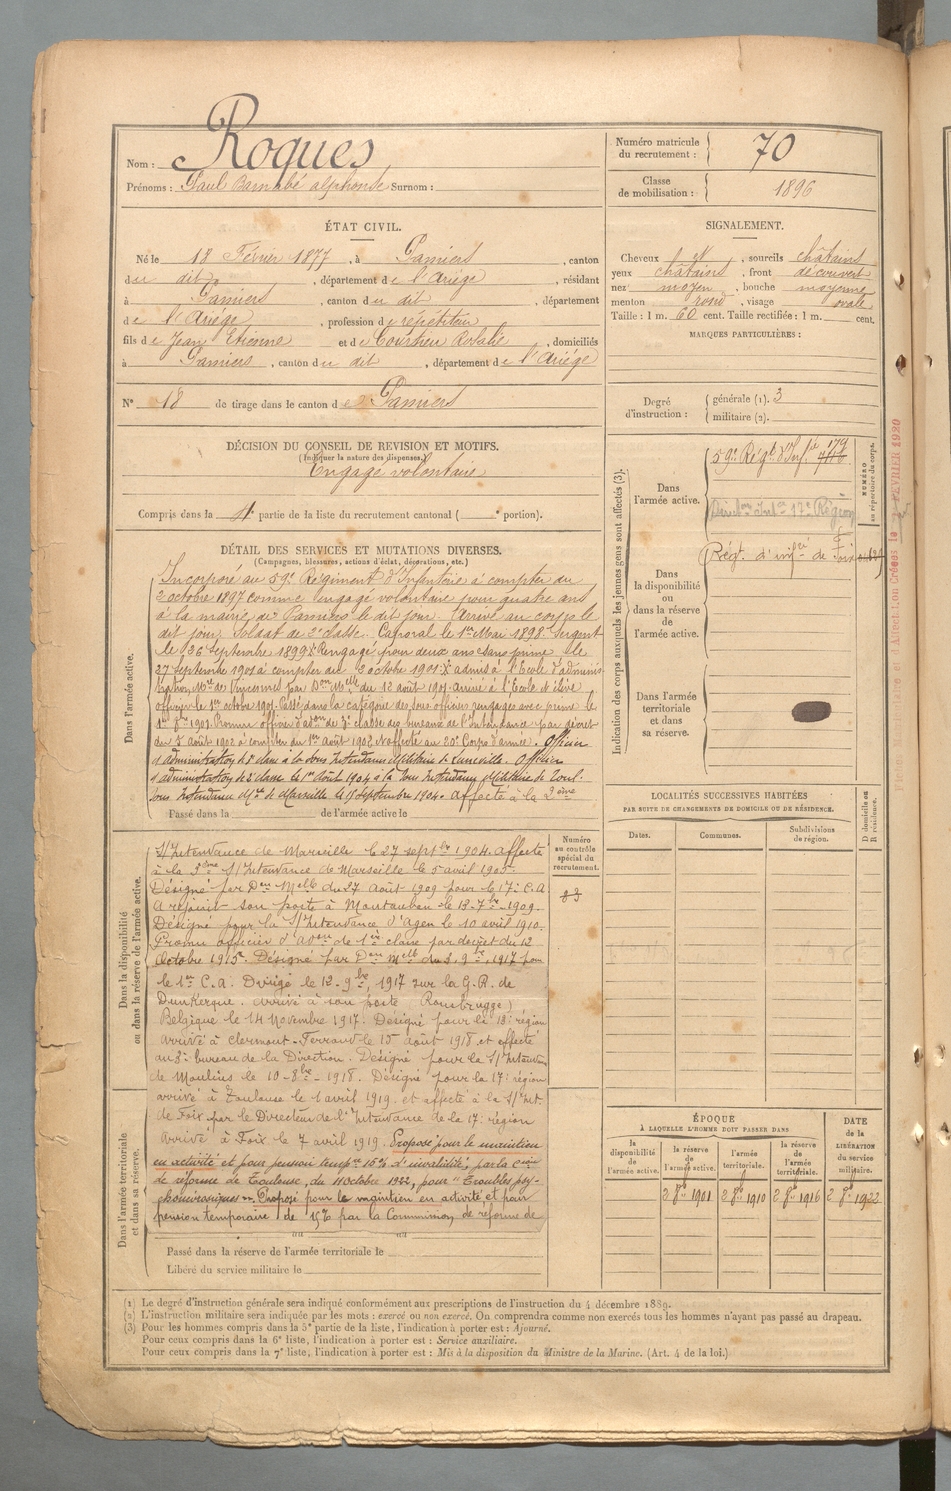 Nom : Roques
Prénoms : Paul Barnabé alphonse Surnom :
Numéro matricule du recrutement : 70
Classe de mobilisation : 1896
ÉTAT CIVIL.
Né le 18 Février 1877, à Pamiers, canton
du dit, département de l'Ariège, résidant
à Pamiers, canton du dit, département
de l'Ariège, profession de répétiteur
fils de Jean Etienne et de Courtieu Rosalie, domiciliés
à Pamiers, canton du dit, département de l'Ariège
N° 18 de tirage dans le canton de Pamiers
SIGNALEMENT.
Cheveux et, sourcils châtains
yeux châtains, front découvert
nez moyen, bouche moyenne
menton rond, visage ovale
Taille : 1 m. 60 cent. Taille rectifiée : 1 m. cent.
MARQUES PARTICULIÈRES :
Degré d'instruction : générale (1). 3
militaire (2).
DÉCISION DU CONSEIL DE REVISION ET MOTIFS.
(Indiquer la nature des dispenses.)
Engagé volontaire
Compris dans la partie de la liste du recrutement cantonal ( e portion).
DÉTAIL DES SERVICES ET MUTATIONS DIVERSES.
(Campagnes, blessures, actions d'éclat, décorations, etc.)
Dans l'armée active.
Incorporé au 59e Régiment d'Infanterie à compter du
2 octobre 1897 comme engagé volontaire pour quatre ans
à la mairie de Pamiers le dit jour. Arrivé au corps le
dit jour, Soldat de 2e classe. Caporal le 1er Mai 1898. Sergent
le 26 Septembre 1899. Rengagé pour deux ans sans prime le
27 septembre 1901 à compter du 2 octobre 1901. admis à l'École d'adminis-
tration Mre de Vincennes par Don Mlle du 12 août 1901. arrivé à l'École et élève
officier le 1er octobre 1901. Passé dans la catégorie des sous officiers rengagés avec prime le
1er 1901. Promu officier d'adon de 3e classe des bureaux de l'Intendance par décret
du 5 août 1902 à compter du 1er août 1902 et affecté au 20e Corps d'armée. Officier
d'administration de 3e classe à la sous Intendance Militaire de Lunéville. Officier
d'administration de 2e classe le 1er Août 1904 à la sous Intendance Militaire de Toul.
sous Intendance Mre de Marseille le 15 Septembre 1904. affecté à la 2ème
Passé dans la de l'armée active le
Dans la disponibilité ou dans la réserve de l'armée active.
S/Intendance de Marseille le 27 septbre 1904. affecté
à la 3ème S/Intendance de Marseille le 5 avril 1905.
Désigné par Don Mlle du 27 Août 1909 pour le 17e C.A
A rejoint son poste à Montauban le 13-7bre-1909.
Désigné pour la S/Intendance d'Agen le 10 avril 1910.
Promu officier d'adon de 1re classe par décret du 12
Octobre 1915. Désigné par Don Mlle du 9bre 1917 pour
le 1er C.A. Dirigé le 12-9bre 1917 sur la G.R. de
Dunkerque. arrivé à son poste (Rousbrugge)
Belgique le 14 Novembre 1917. Désigné pour la 13e région
arrivé à Clermont-Ferrand le 15 août 1918 et affecté
au 3e bureau de la Direction. Désigné pour la S/Intendance
de Moulins le 10-8bre-1918. Désigné pour la 17e région
arrivé à Toulouse le 1 avril 1919. et affecté à la S/Int.
de Foix par le Directeur de l'Intendance de la 17e région
Arrivé à Foix le 7 avril 1919. Proposé pour le maintien
en activité et pour pension tempre 15% d'invalidité, par la Comon
de réforme de Toulouse, du 11 octobre 1922, pour "Troubles psy-
chonévrosiques". Proposé pour le maintien en activité et pour
pension temporaire de 15% par la Commission de réforme de
Dans l'armée territoriale et dans sa réserve.
Passé dans la réserve de l'armée territoriale le
Libéré du service militaire le
Numéro au contrôle spécial du recrutement.
83
Indication des corps auxquels les jeunes gens sont affectés (3).
Dans l'armée active.
59e Régt d'Infie
Dirton Intce 17e Région
NUMÉRO au répertoire du corps.
Dans la disponibilité ou dans la réserve de l'armée active.
Régt d'infrie de Foix
Dans l'armée territoriale et dans sa réserve.
LOCALITÉS SUCCESSIVES HABITÉES
PAR SUITE DE CHANGEMENTS DE DOMICILE OU DE RÉSIDENCE.
Dates. Communes. Subdivisions de région. D domicile ou R résidence.
ÉPOQUE
À LAQUELLE L'HOMME DOIT PASSER DANS
la disponibilité de l'armée active. la réserve de l'armée active. l'armée territoriale. la réserve de l'armée territoriale.
DATE de la LIBÉRATION du service militaire.
2 8bre 1901 2 8bre 1910 2 8bre 1916 2 8bre 1922
(1) Le degré d'instruction générale sera indiqué conformément aux prescriptions de l'instruction du 4 décembre 1889.
(2) L'instruction militaire sera indiquée par les mots : exercé ou non exercé. On comprendra comme non exercés tous les hommes n'ayant pas passé au drapeau.
(3) Pour les hommes compris dans la 5e partie de la liste, l'indication à porter est : Ajourné.
Pour ceux compris dans la 6e liste, l'indication à porter est : Service auxiliaire.
Pour ceux compris dans la 7e liste, l'indication à porter est : Mis à la disposition du Ministre de la Marine. (Art. 4 de la loi.)